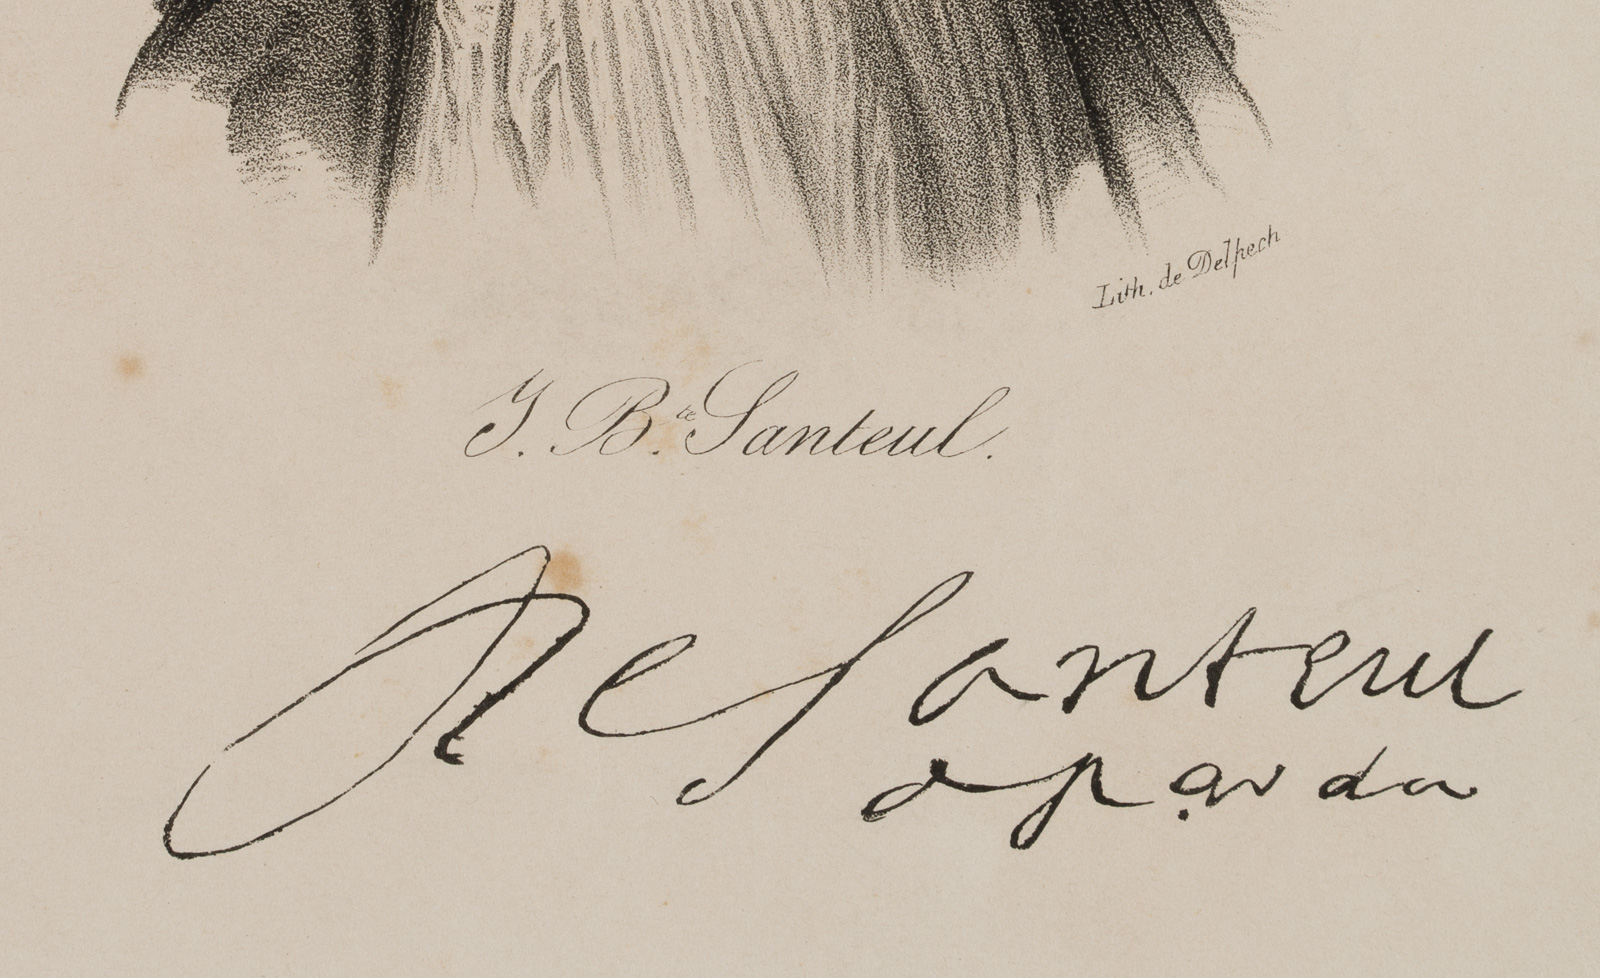 Lith. de Delpech
J. B.te Santeul.
De Santeul